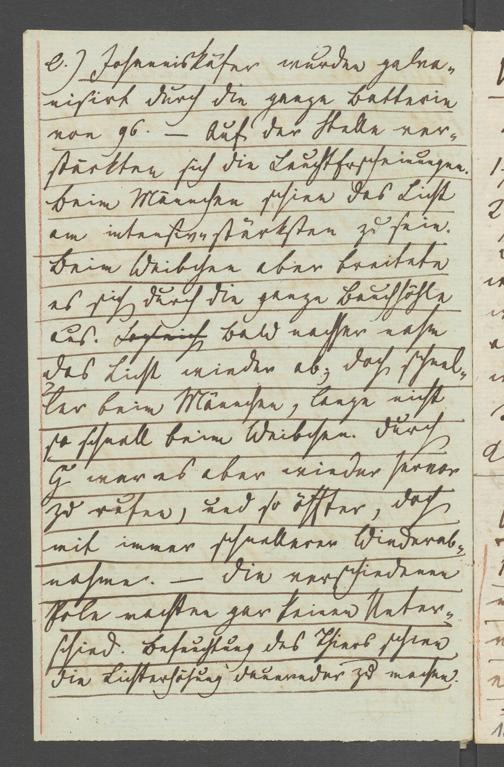 e.) Johanniskäfer wurden galva-
nisirt durch die ganze Batterie
von 96. — Auf der Stelle ver-
stärkten sich die Leuchterscheinungen.
Beim Männchen schien das Licht
am intensiv-stärksten zu sein.
Beim Weibchen aber breitete
es sich durch die ganze Bauchhöhle
aus. Bald nachher nahm
das Licht wieder ab; doch schnel-
ler beim Männchen, lange nicht
so schnell beim Weibchen. Durch
G war es aber wieder hervor
zu rufen, und so öffter, doch
mit immer schnellerer Wiederab-
nahme. — Die verschiedenen
Pole machten gar keinen Unter-
schied. Befeuchtung des Thiers schien
die Lichterhöhung dauernder zu machen.